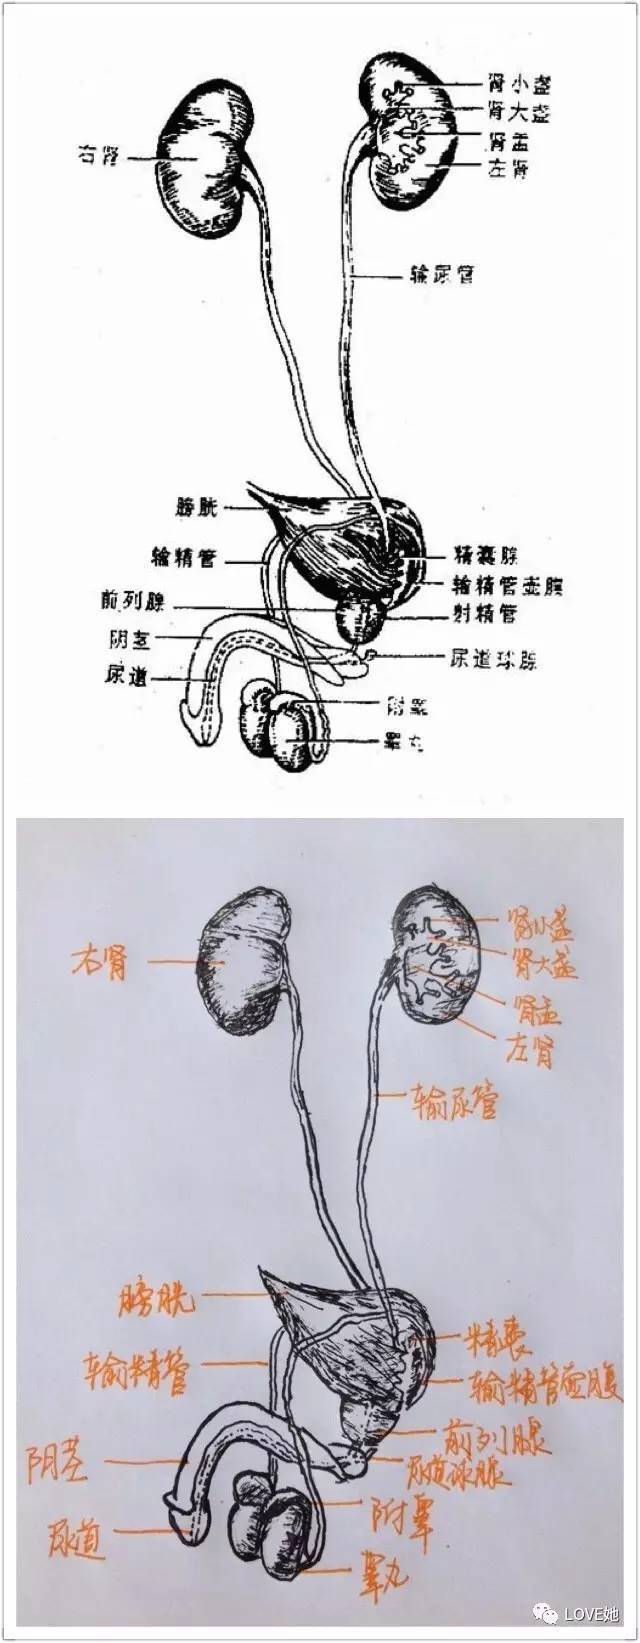 肾小盏
肾大盏
右肾
肾盂
左肾
输尿管
膀胱
输精管
精囊腺
输精管壶腹
前列腺
射精管
阴茎
尿道
尿道球腺
附睾
睾丸
右肾
肾小盏
肾大盏
肾盂
左肾
输尿管
膀胱
精囊
输精管
输精管壶腹
前列腺
阴茎
尿道球腺
附睾
尿道
睾丸
LOVE她